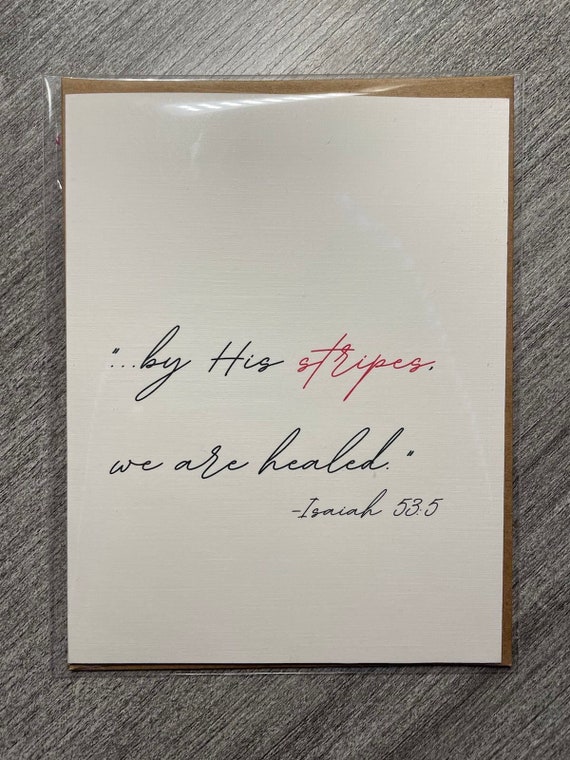 "...by His stripes,
we are healed."
-Isaiah 53:5